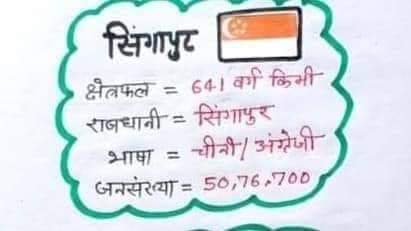 सिंगापुर
क्षेत्रफल = 641 वर्ग किमी
राजधानी = सिंगापुर
भाषा = चीनी/अंग्रेजी
जनसंख्या = 50,76,700